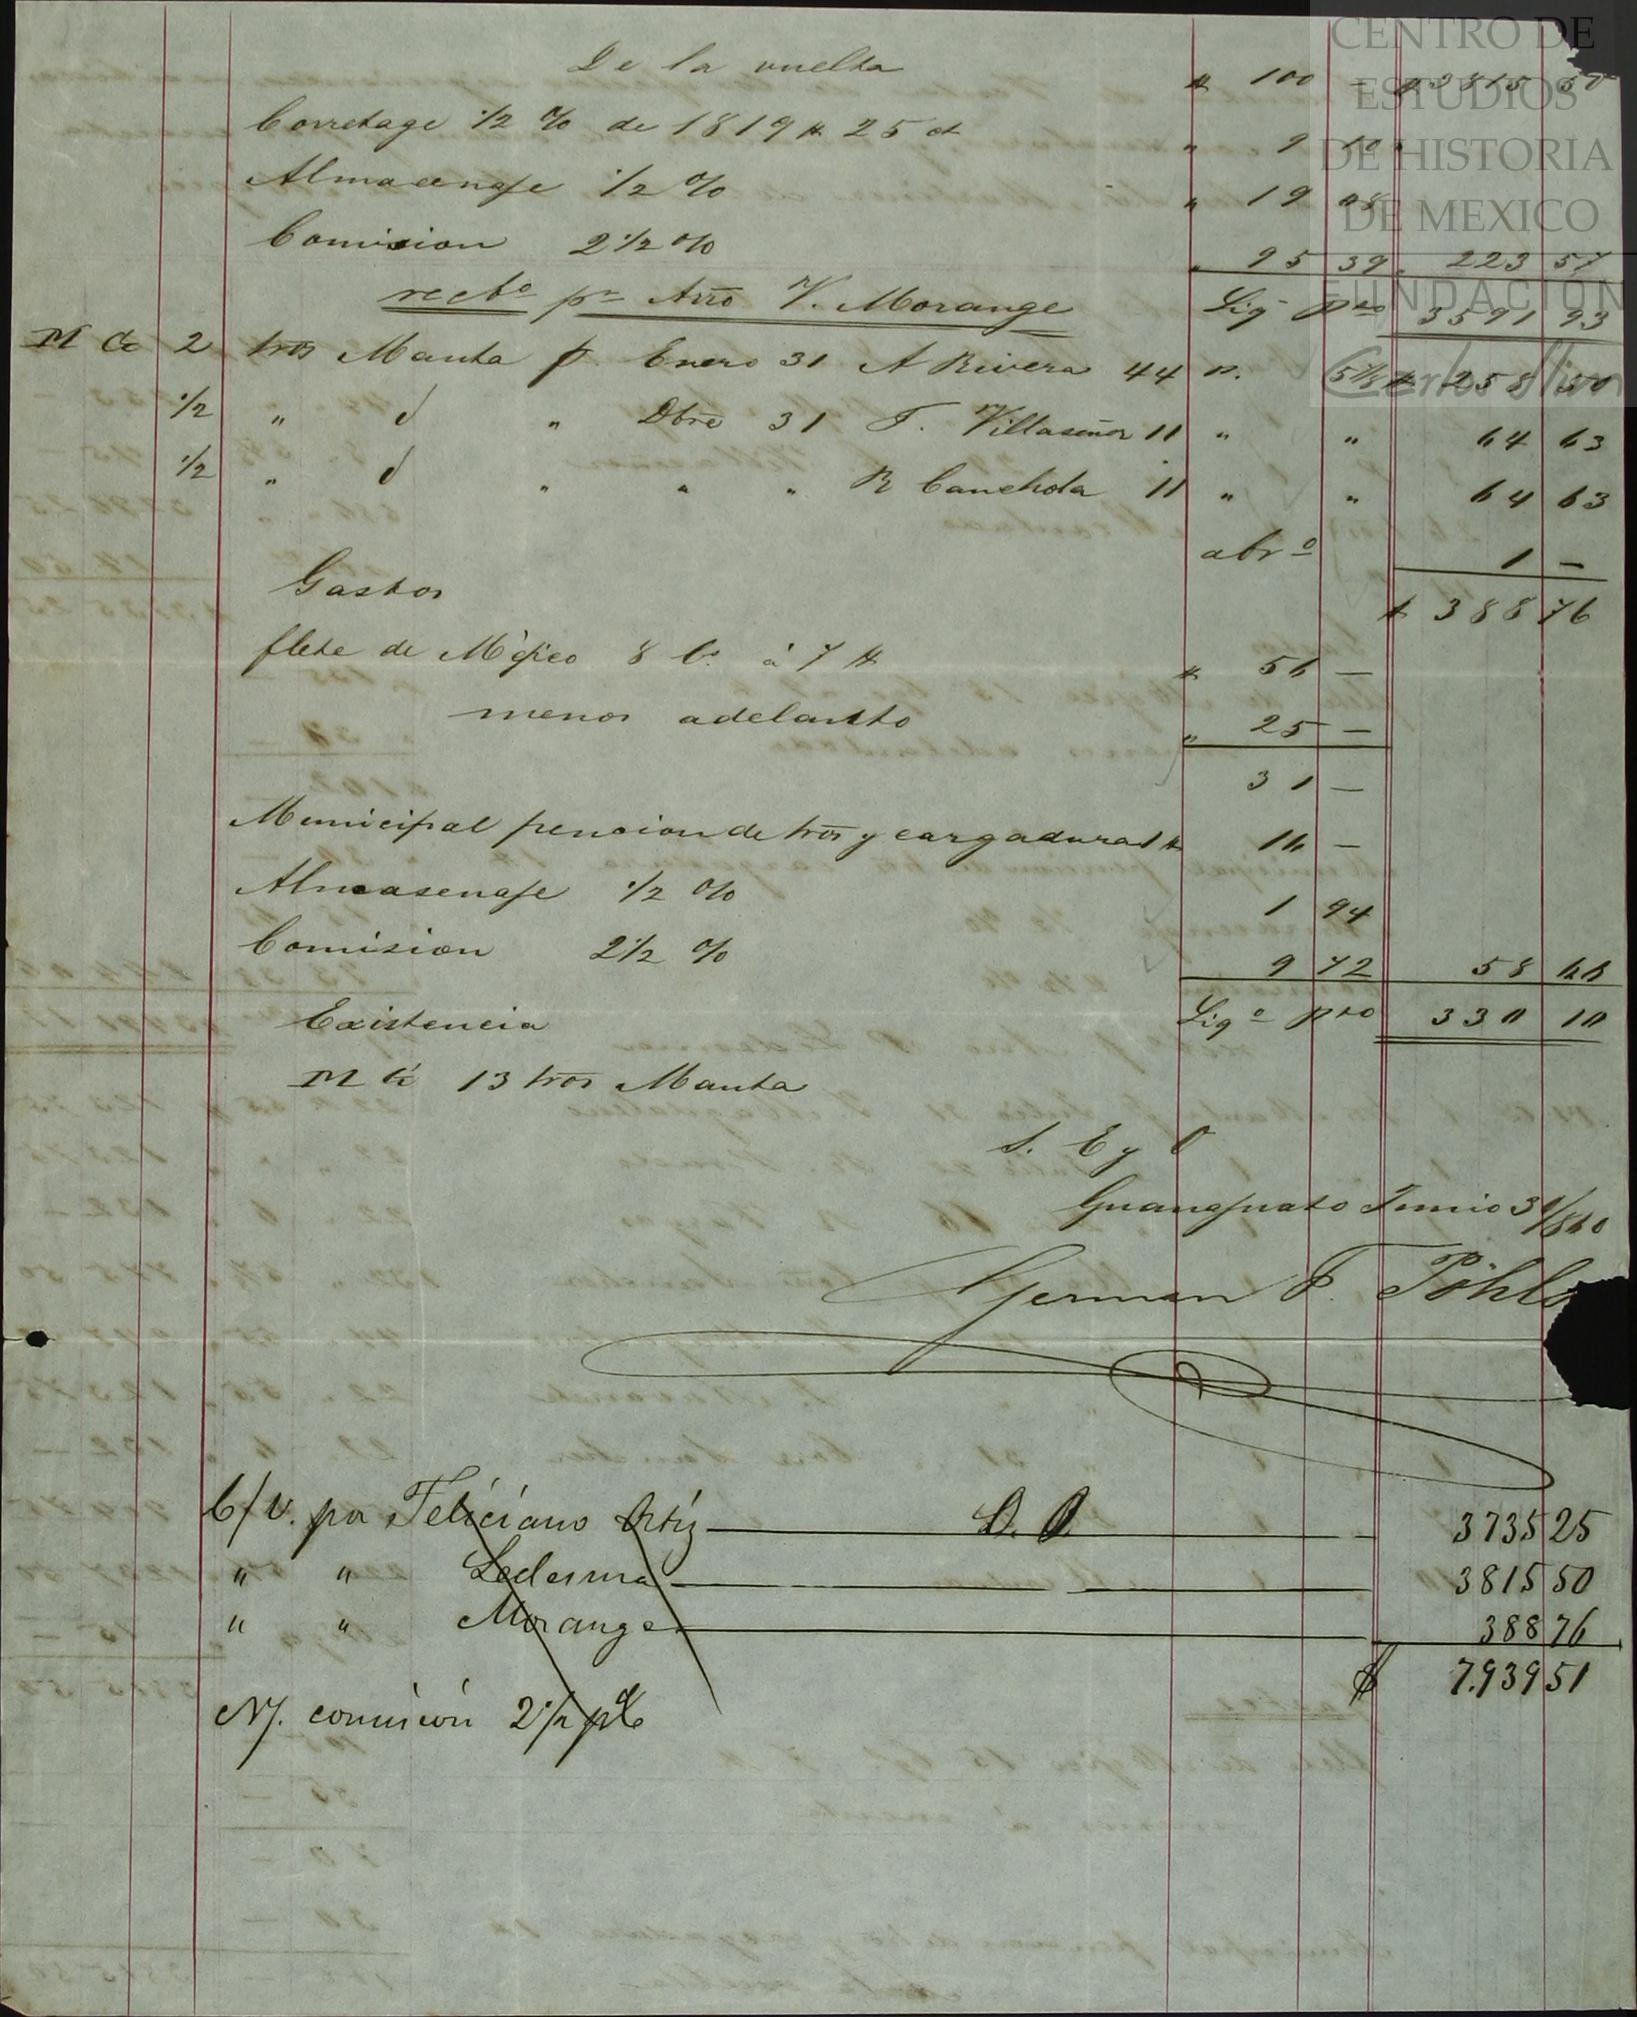 CENTRO DE
ESTUDIOS
DE HISTORIA
DE MEXICO
FUNDACION
De la vuelta $ 100 — $ 3815 50
Corretage 1/2 % de 1819 $ 25 ct " 9 10
Almacenaje 1/2 % " 19 08
Comision 2 1/2 % " 95 39 " 223 57
recbo pr Arro V. Morange Liq pto 3591 93
M C 2 tros Manta p Enero 31 A Rivera 44 p. 5 7/8 $ 258 50
1/2 " d " Dbre 31 F. Villaseñor 11 " " 64 63
1/2 " d " " " R Canchola 11 " " 64 63
abro 1 —
Gastos $ 388 76
flete de Méjico 8 @ á 7 $ $ 56 —
menos adelanto " 25 —
31 —
Municipal pension de tros y cargadura 1 $ 16 —
Almasenaje 1/2 % 1 94
Comision 2 1/2 % 9 72 58 66
Existencia Liqo pto 330 10
M C 13 tros Manta
S. E y O
Guanajuato Junio 30/860
German F. Pöhls
C/V. por Feliciano Ortiz — D. O. — 3735 25
" " Ledesma — 3815 50
" " Morange — 388 76
$ 7.939 51
N/. comisión 2 1/2 p%